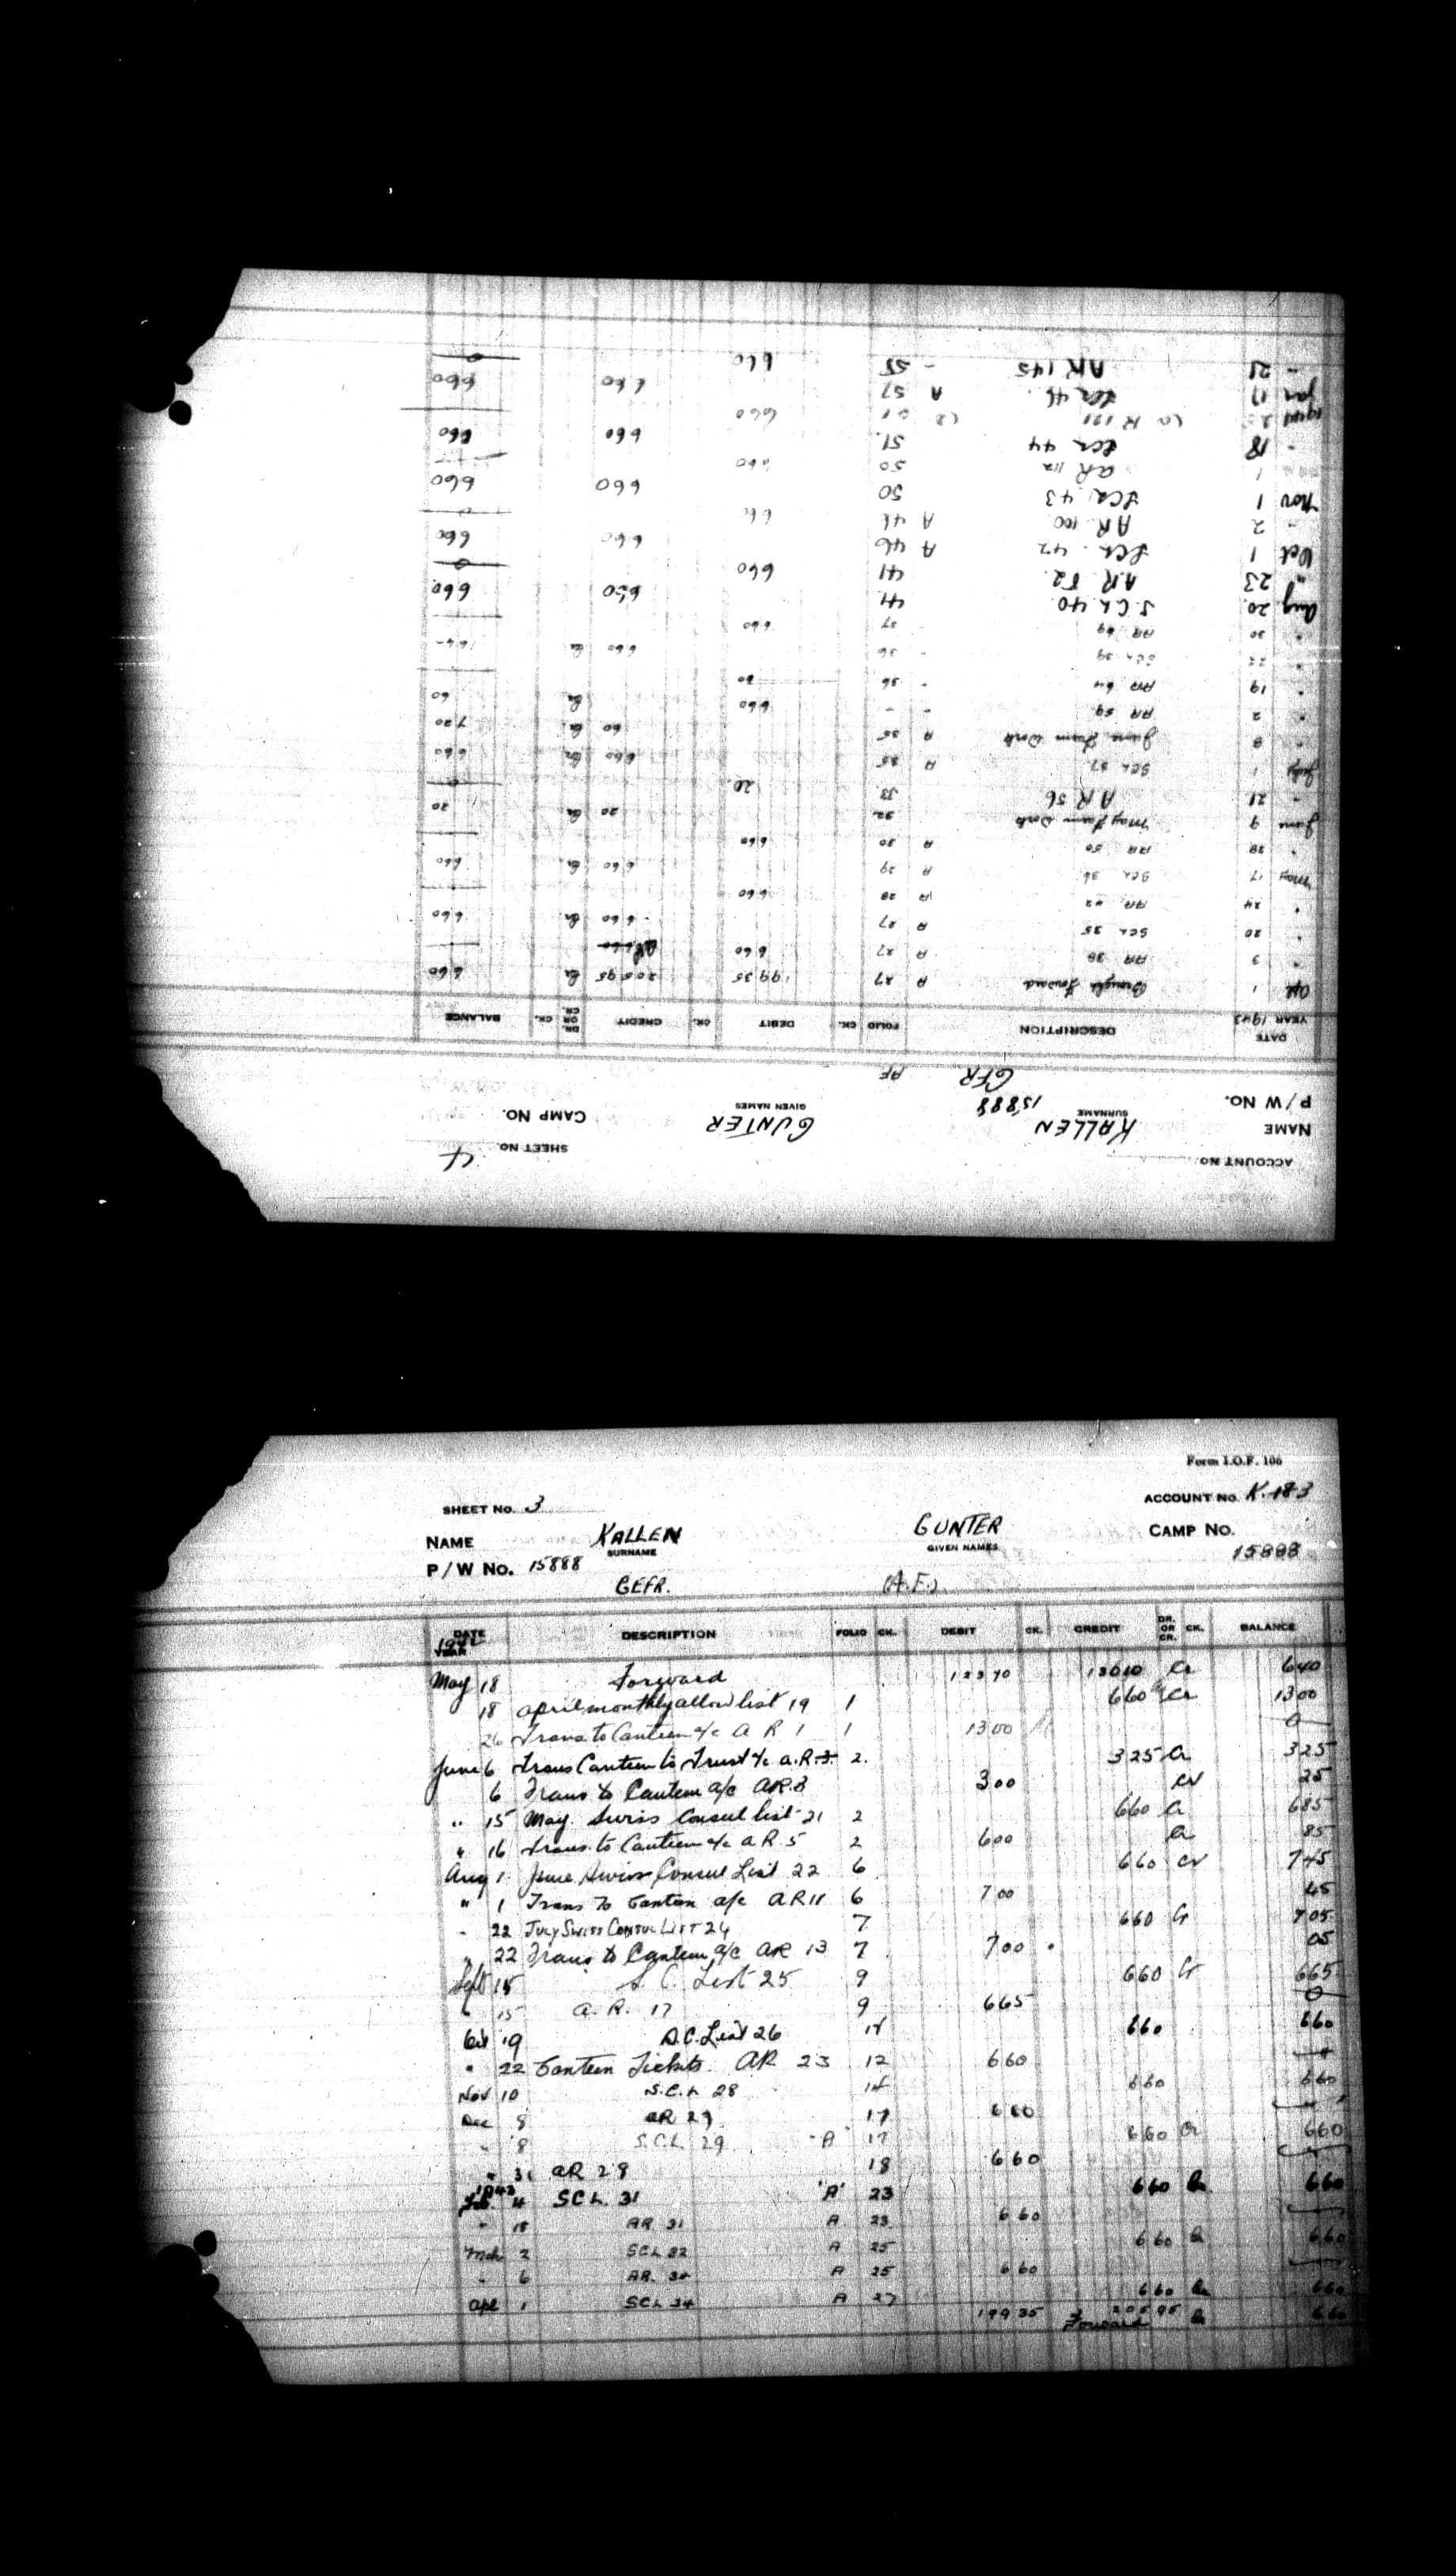 ACCOUNT NO.
SHEET NO. 4
NAME KALLEN GUNTER
SURNAME GIVEN NAMES CAMP NO.
P/W NO. 15888
GFR AF
DATE YEAR 1943 DESCRIPTION FOLIO CK. DEBIT CK. CREDIT DR. OR CR. CK. BALANCE
Apl 1 Brought Forward A 27 199 35 205 95 Cr 6 60
" 3 AR 38 A 27 6 60
" 20 SCL 35 A 27 6 60 Cr 6 60
" 24 AR 42 A 28 6 60
May 17 SCL 36 A 29 6 60 Cr 6 60
" 28 AR 50 A 30 6 60
June 9 May Farm Work 32 20 Cr 20
" 21 AR 56 33 20 0
July 1 SCL 37 A 35 6 60 Cr 6 60
" 8 June Farm Work A 35 60 Cr 7 20
" 2 AR 59 " " 6 60 Cr 60
" 19 AR 64 " 36 60
" 22 SCL 39 " 36 6 60 Cr
" 30 AR 69 " 37 6 60
Aug 20 S.C.L. 40 41 6 60 6 60
" 23 A.R. 82 41 6 60 0
Oct 1 SCL 42 A 46 6 60 6 60
" 2 AR 100 A 46 6 60 0
Nov 1 SCL 43 50 6 60 6 60
1 AR 112 50 6 60
" 18 SCL 44 51 6 60 6 60
1944 2 AR 131 6 60
Jan 17 SCL 46 A 57 6 60 6 60
" 21 AR 145 - 58 6 60 0
Form I.O.F. 106
SHEET NO. 3 ACCOUNT NO. K-183
NAME KALLEN GUNTER CAMP NO.
SURNAME GIVEN NAMES
P/W NO. 15888 15888
GEFR. (A.F.)
DATE 1942 YEAR DESCRIPTION FOLIO CK. DEBIT CK. CREDIT DR. OR CR. CK. BALANCE
May 18 Forward 123 70 130 10 Cr 6 40
18 April monthly allow list 19 1 6 60 Cr 13 00
26 Trans to Canteen a/c A R 1 1 13 00 0
June 6 Trans Canteen to Trust a/c A.R. 3 2. 3 25 Cr 3 25
6 Trans to Canteen a/c AR 3 3 00 Cr 25
" 15 May Swiss Consul list 21 2 6 60 Cr 6 85
" 16 Trans. to Canteen a/c A R 5 2 6 00 Cr 85
Aug 1 June Swiss Consul List 22 6 6 60 Cr 7 45
" 1 Trans To Canteen a/c AR 11 6 7 00 45
" 22 JULY SWISS CONSUL LIST 24 7 6 60 Cr 7 05
" 22 Trans to Canteen a/c AR 13 7 7 00 05
Sept 15 S.C. List 25 9 6 60 Cr 6 65
" 15 A.R. 17 9 6 65 0
Oct 19 S.C. List 26 6 60 6 60
" 22 Canteen Tickets AR 23 12 6 60
Nov 10 S.C.L 28 14 6 60 6 60
Dec 8 AR 27 17 6 60
" 8 S.C.L. 29 "A" 17 6 60 Cr 6 60
" 31 AR 29 18 6 60
1943
Feb 4 SCL. 31 "A" 23 6 60 Cr 6 60
" 18 AR 31 A 23 6 60
Mch 2 SCL 32 A 25 6 60 Cr 6 60
" 6 AR. 34 A 25 6 60
Apl 1 SCL 34 A 27 6 60 Cr 6 60
199 35 205 95 Cr 6 60
Forward